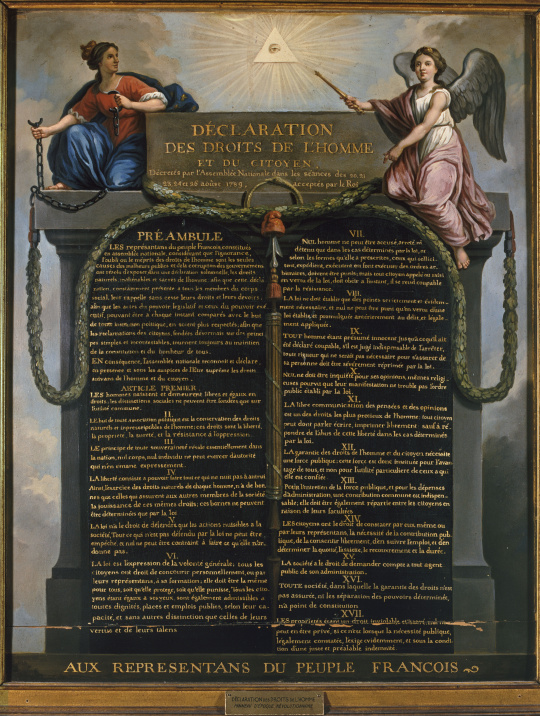 DÉCLARATION
DES DROITS DE L'HOMME
ET DU CITOYEN,
Décretés par l'Assemblée Nationale dans les séances des 20, 21
23, 24 et 26 août 1789, acceptés par le Roi
PRÉAMBULE
LES représentans du peuple François, constitués
en assemblée nationale, considérant que l'ignorance,
l'oubli ou le mépris des droits de l'homme sont les seules
causes des malheurs publics et de la corruption des gouvernemens
ont résolu d'exposer dans une déclaration solemnelle, les droits
naturels, inaliénables et sacrés de l'homme; afin que cette décla-
ration, constamment présente a tous les membres du corps
social, leur rappelle sans cesse leurs droits et leurs devoirs;
afin que les actes du pouvoir législatif et ceux du pouvoir exé-
cutif, pouvant être a chaque instant comparés avec le but
de toute institution politique, en soient plus respectés; afin que
les réclamations des citoyens, fondées désormais sur des princi-
pes simples et incontestables, tournent toujours au maintien
de la constitution et du bonheur de tous.
EN conséquence, l'assemblée nationale reconnoit et déclare
en présence et sous les auspices de l'Etre suprême les droits
suivans de l'homme et du citoyen.
ARTICLE PREMIER.
LES hommes naissent et demeurent libres et égaux en
droits, les distinctions sociales ne peuvent être fondées que sur
l'utilité commune.
II.
LE but de toute association politique est la conservation des droits
naturels et imprescriptibles de l'homme; ces droits sont la liberté,
la propriété, la sureté, et la résistance à l'oppression.
III.
LE principe de toute souveraineté réside essentiellement dans
la nation, nul corps, nul individu ne peut exercer d'autorité
qui n'en émane expressément.
IV.
LA liberté consiste a pouvoir faire tout ce qui ne nuit pas à autrui
Ainsi, l'exercice des droits naturels de chaque homme, n'a de bor-
nes que celles qui assurent aux autres membres de la société
la jouissance de ces mêmes droits; ces bornes ne peuvent
être déterminées que par la loi
V.
LA loi n'a le droit de défendre que les actions nuisibles à la
société. Tout ce qui n'est pas défendu par la loi ne peut être
empêché, et nul ne peut être contraint à faire ce qu'elle n'or-
donne pas.
VI.
LA loi est l'expression de la volonté générale; tous les
citoyens ont droit de concourir personnellement, ou par
leurs représentans, à sa formation; elle doit être la même
pour tous, soit qu'elle protege, soit qu'elle punisse. Tous les citoy-
ens étant égaux à ses yeux, sont également admissibles à
toutes dignités, places et emplois publics, selon leur capa-
cité, et sans autres distinction que celles de leurs
vertus et de leurs talens
VII.
NUL homme ne peut être accusé, arreté ni
détenu que dans les cas déterminés par la loi, et
selon les formes qu'elle a prescrites, ceux qui sollici-
tent, expédient, exécutent ou font exécuter des ordres ar-
bitraires, doivent être punis; mais tout citoyen appelé ou saisi
en vertu de la loi, doit obéir a l'instant, il se rend coupable
par la résistance.
VIII.
LA loi ne doit établir que des peines strictement et évidem-
ment nécessaire, et nul ne peut être puni qu'en vertu d'une
loi établie et promulguée antérieurement au délit, et légale-
ment appliquée.
IX.
TOUT homme étant présumé innocent jusqu'à ce qu'il ait
été déclaré coupable, s'il est jugé indispensable de l'arrêter,
toute rigueur qui ne serait pas nécessaire pour s'assurer de
sa personne doit être sévèrement réprimée par la loi.
X.
NUL ne doit être inquiété pour ses opinions, mêmes religi-
euses pourvu que leur manifestation ne trouble pas l'ordre
public établi par la loi.
XI.
LA libre communication des pensées et des opinions
est un des droits les plus precieux de l'homme; tout citoyen
peut donc parler écrire, imprimer librement; sauf à ré-
pondre de l'abus de cette liberté dans les cas déterminés
par la loi.
XII.
LA garantie des droits de l'homme et du citoyen nécessite
une force publique; cette force est donc instituée pour l'avan-
tage de tous, et non pour l'utilité particuliere de ceux a qui
elle est confiée.
XIII.
Pour l'entretien de la force publique, et pour les dépenses
d'administration, une contribution commune est indispen-
sable; elle doit être également répartie entre les citoyens en
raison de leurs facultées
XIV.
LES citoyens ont le droit de constater par eux même ou
par leurs représentans, la nécessité de la contribution pub-
lique, de la consentir librement, d'en suivre l'emploi, et d'en
déterminer la quotité, l'assiette, le recouvrement et la durée.
XV.
LA société a le droit de demander compte a tout agent
public de son administration.
XVI.
TOUTE société, dans laquelle la garantie des droits n'est
pas assurée, ni les séparation des pouvoirs déterminée,
n'a point de constitution
XVII.
LES propriétés étant un droit inviolable et sacré, nul ne
peut en être privé, si ce n'est lorsque la nécessité publique,
légalement constatée, l'exige évidemment, et sous la condi-
tion d'une juste et préalable indemnité.
AUX REPRESENTANS DU PEUPLE FRANCOIS
DÉCLARATION DES DROITS DE L'HOMME